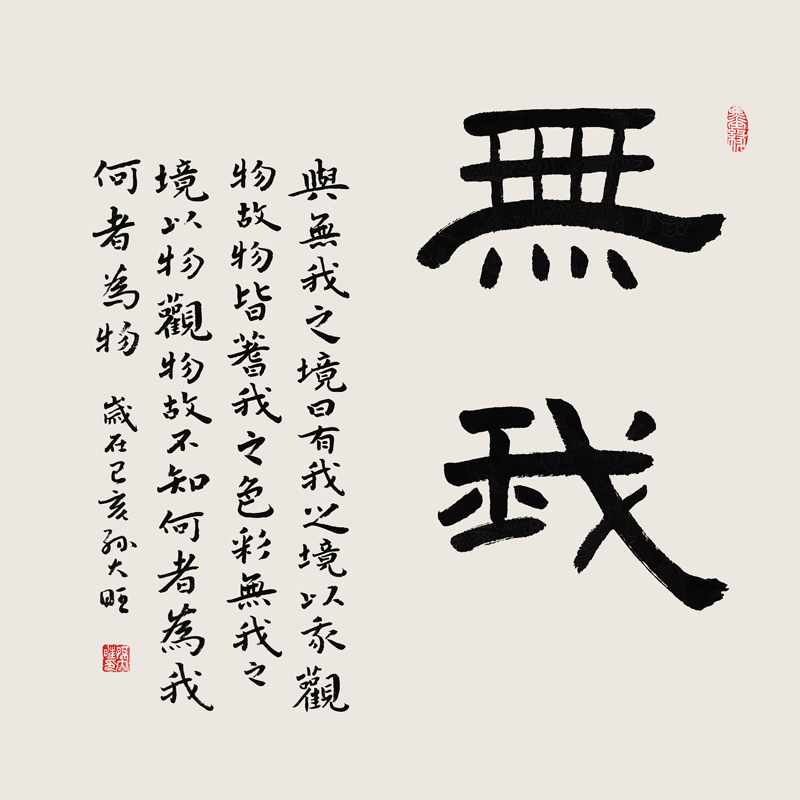 無我
與無我之境曰有我之境以我觀
物故物皆著我之色彩無我之
境以物觀物故不知何者為我
何者為物 歲在己亥孫大旺